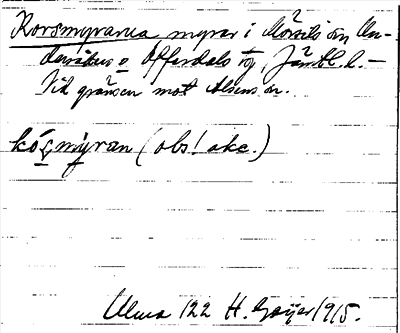 Korsmyrarna myrar i Mörsils sn, Un-
dersåkers o. Offerdals tg, Jämtl. l. —
Vid gränsen mot Alsens sn.
kó̜smỳran (obs! akc.)
Ulma 122 H. Geijer 1915.